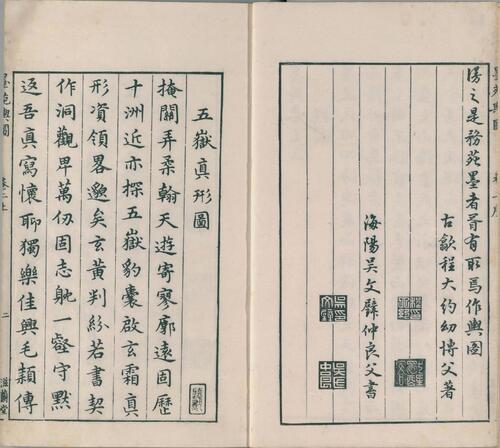 之是務苑墨者胥有取焉作輿圖
古歙程大約幼博父著
海陽吳文仲良父書
五嶽真形圖
掩關弄柔翰天遊寄寥廓遠固歷
十洲近亦探五嶽豹囊啟玄霜真
形資領畧邈矣玄黃判紛若書契
作洞觀卑萬仞固志躭一壑守默
返吾真寫懷聊獨樂佳興毛穎傳
墨苑輿圖 卷二上 二 滋蘭堂